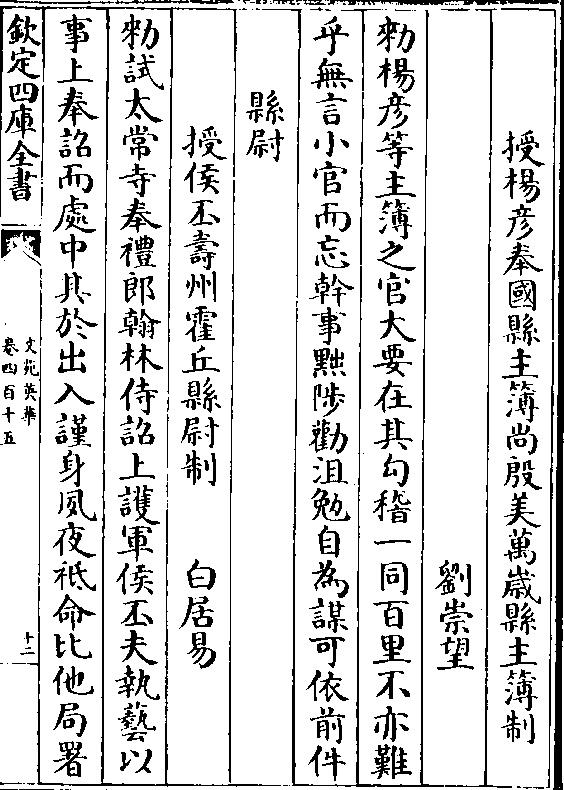 授楊彦奉國縣主簿尚殷美萬歳縣主簿制
劉崇望
勑楊彦等主簿之官大要在其勾稽一同百里不亦難
乎無言小官而忘幹事黜陟勸沮勉自為謀可依前件
縣尉
授侯丕壽州霍丘縣尉制 白居易
勑試太常寺奉禮郎翰林侍詔上護軍侯丕夫執藝以
事上奉詔而處中其於出入謹身夙夜祗命比他局署
欽定四庫全書
文苑英華
卷四百十五
十二